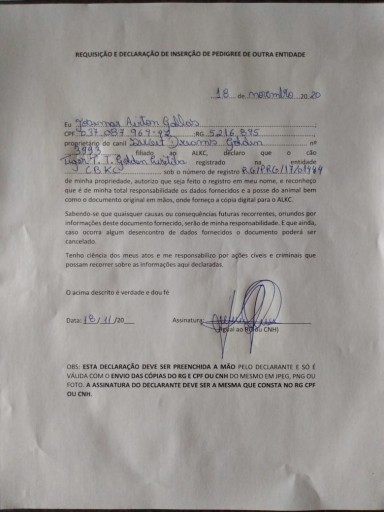 REQUISIÇÃO E DECLARAÇÃO DE INSERÇÃO DE PEDIGREE DE OUTRA ENTIDADE
18 de novembro 20 20
Eu Josamar Airton Gallas
CPF RG 5216875
proprietário do canil Golden nº
3993 filiado ao ALKC, declaro que o cão
Tiger T. T. Golden registrado na entidade
CBKC, sob o número de registro
de minha propriedade, autorizo que seja feito o registro em meu nome, e reconheço
que é de minha total responsabilidade os dados fornecidos e a posse do animal bem
como o documento original em mãos, onde forneço a cópia digital para o ALKC.
Sabendo-se que quaisquer causas ou consequências futuras recorrentes, oriundos por
informações deste documento fornecido, serão de minha responsabilidade. E que ainda,
caso ocorra algum desencontro de dados fornecidos o documento poderá ser
cancelado.
Tenho ciência dos meus atos e me responsabilizo por ações cíveis e criminais que
possam recorrer sobre as informações aqui declaradas.
O acima descrito é verdade e dou fé
Data: 18/11/20 Assinatura:
(Igual ao RG ou CNH)
OBS: ESTA DECLARAÇÃO DEVE SER PREENCHIDA A MÃO PELO DECLARANTE E SO É
VÁLIDA COM O ENVIO DAS CÓPIAS DO RG E CPF OU CNH DO MESMO EM JPEG, PNG OU
FOTO. A ASSINATURA DO DECLARANTE DEVE SER A MESMA QUE CONSTA NO RG CPF
OU CNH.